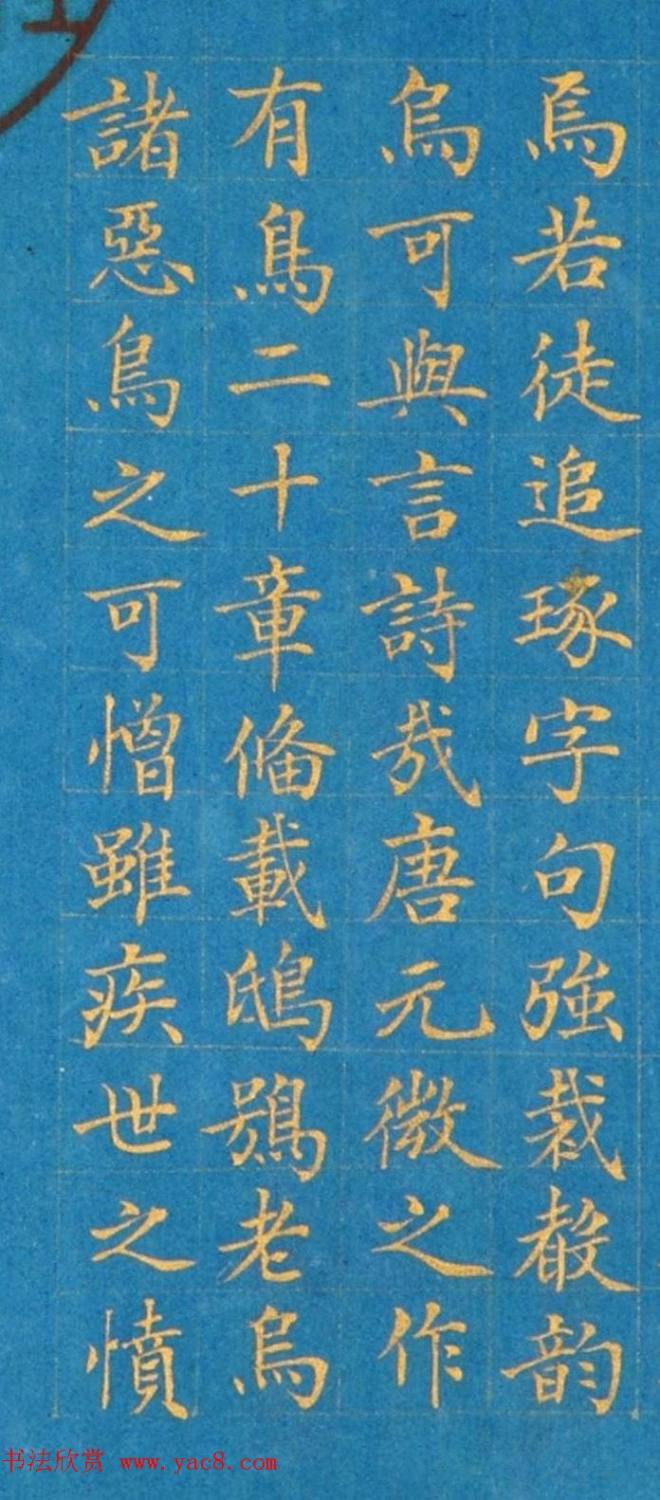 焉若徒追琢字句強裁殸韵
烏可與言詩哉唐元微之作
有鳥二十章俻載鴟鴞老烏
諸惡鳥之可憎雖疾世之憤
书法欣赏 www.yac8.com